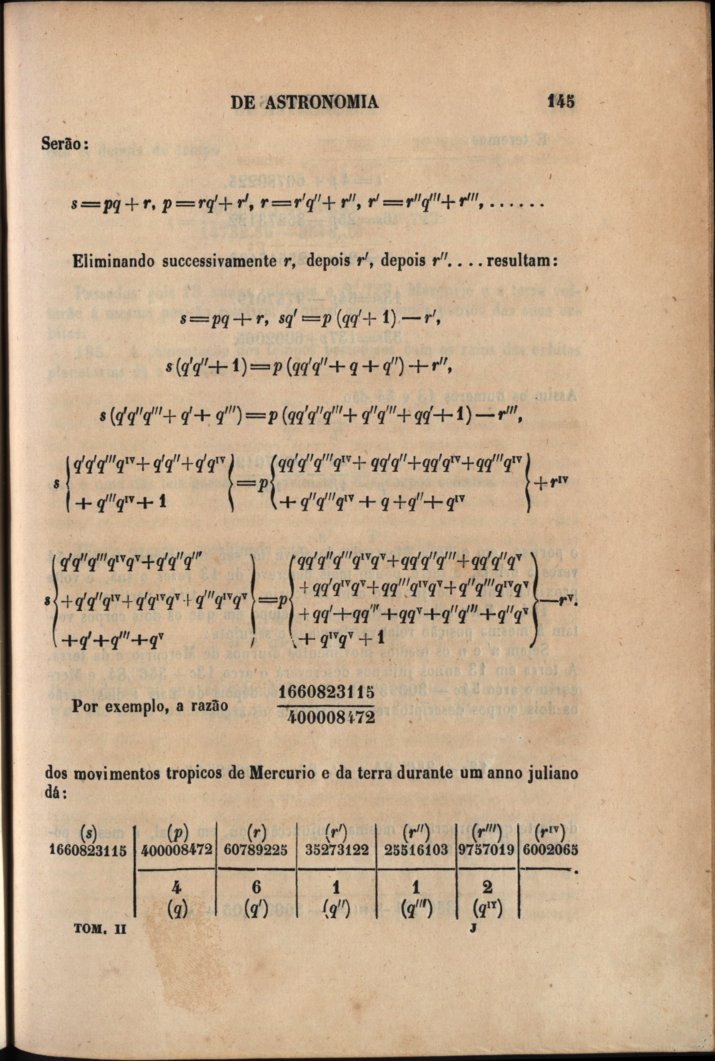 DE ASTRONOMIA 145
Serão:
s=pq+r, p=rq′+r′, r=r′q″+r″, r′=r″q‴+r‴,......
Eliminando successivamente r, depois r′, depois r″....resultam:
s=pq+r, sq′=p(qq′+1)—r′,
s(q′q″+1)=p(qq′q″+q+q″)+r″,
s(q′q″q‴+q′+q‴)=p(qq′q″q‴+q″q‴+qq′+1)—r‴,
s{q′q′q‴qᴵⱽ+q′q″+q′qᴵⱽ}=p{qq′q″q‴qᴵⱽ+qq′q″+qq′qᴵⱽ+qq‴qᴵⱽ}+rᴵⱽ
+q‴qᴵⱽ+1 +q″q‴qᴵⱽ+q+q″+qᴵⱽ
q′q″q‴qᴵⱽqⱽ+q′q″q‴ qq′q″q‴qᴵⱽqⱽ+qq′q″q‴+qq′q″qⱽ
s{+q′q″qᴵⱽ+q′qᴵⱽqⱽ+q‴qᴵⱽqⱽ}=p{+qq′qᴵⱽqⱽ+qq‴qᴵⱽqⱽ+q″q‴qᴵⱽqⱽ}—rⱽ.
+qq′+qq‴+qqⱽ+q″q‴+q″qⱽ
+q′+q‴+qⱽ +qᴵⱽqⱽ+1
Por exemplo, a razão 1660823115
400008472
dos movimentos tropicos de Mercurio e da terra durante um anno juliano
dá:
(s) (p) (r) (r′) (r″) (r‴) (rᴵⱽ)
1660823115 400008472 60789225 35273122 25516103 9757019 6002065
4 6 1 1 2
(q) (q′) (q″) (q‴) (qᴵⱽ)
TOM. II J